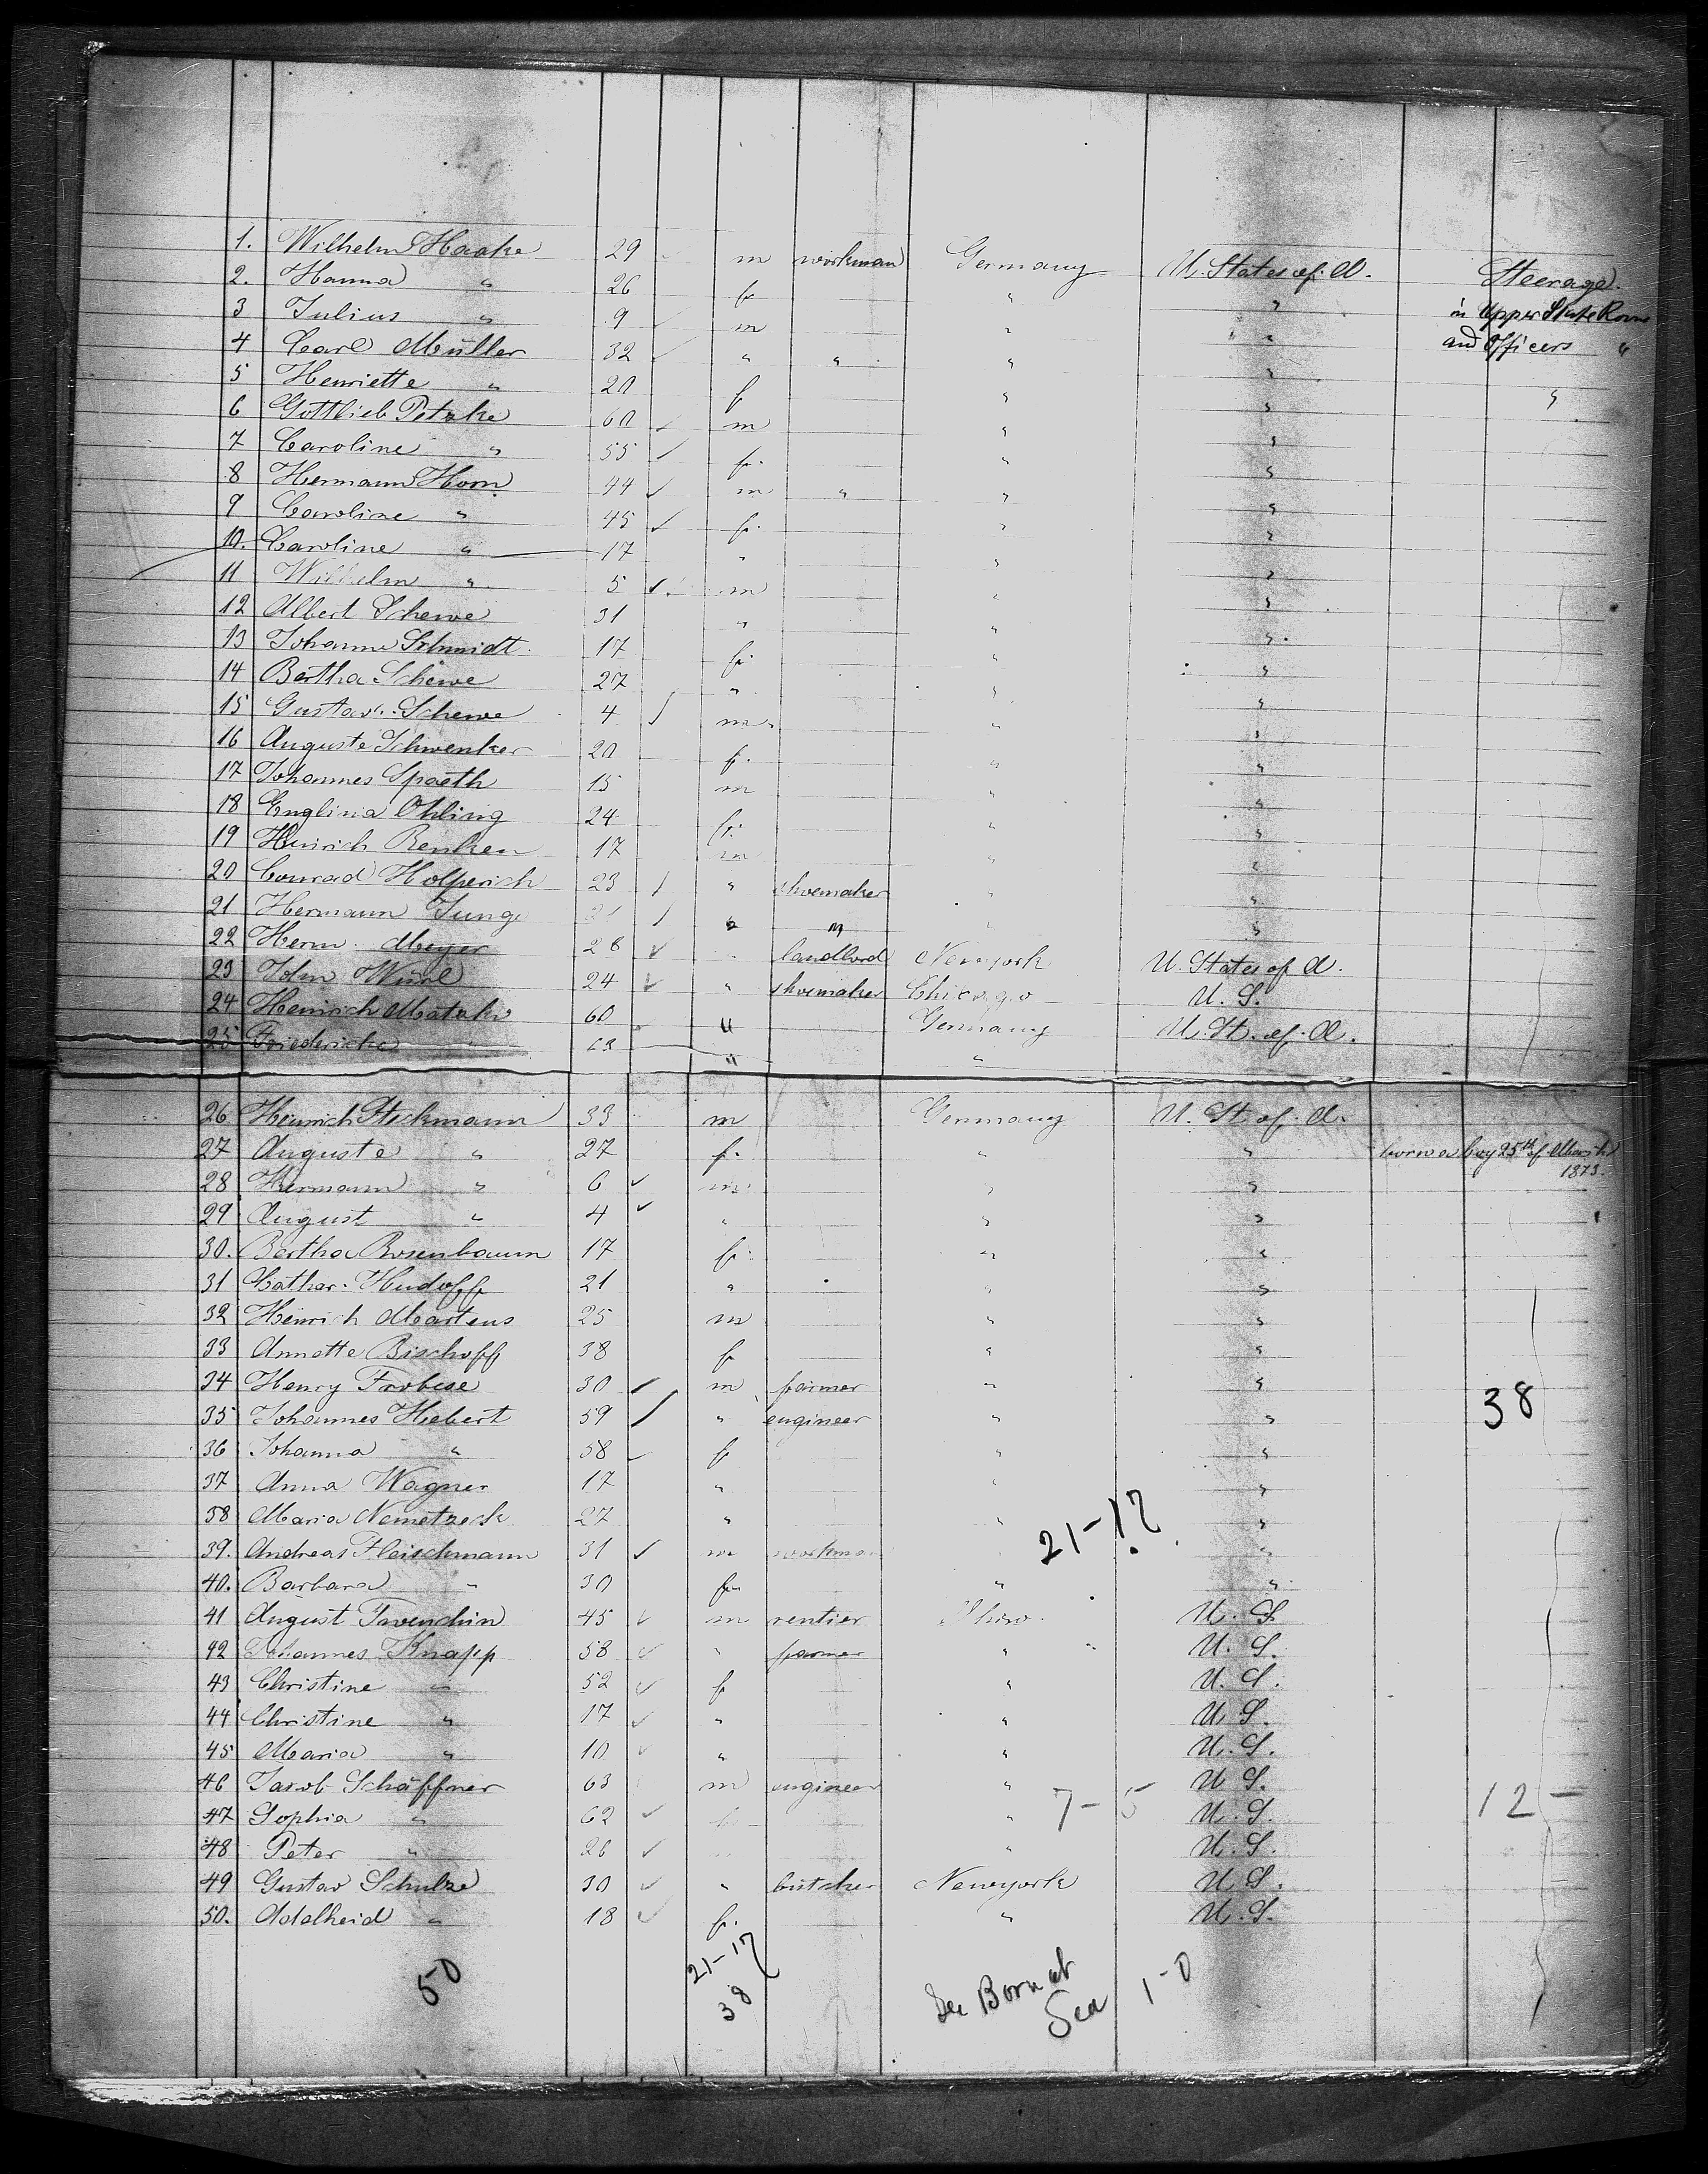 1. Wilhelm Haake 29 m workman Germany U. States of. A. Steerage.
2. Hanna " 26 f. " " in Upper State Room
3 Julius " 9 m " " and Officers "
4 Carl Müller 32 " " " "
5 Henriette " 20 f " " "
6 Gottlieb 60 m " "
7 Caroline " 55 f. " "
8 Hermann Horn 44 m " " "
9 Caroline " 45 f. " "
10. Caroline " 17 " " "
11 Wilhelm " 5 m " "
12 Albert Schewe 31 " " "
13 Johanne Schmidt. 17 f. " "
14 Bertha Schewe 27 " " "
15 Gustav. Schewe 4 m. " "
16 Auguste Schwenker 20 f. " "
17 Johannes Spaeth 15 m " "
18 Englina Ohling 24 f. " "
19 Heinrich Renken 17 m " "
20 Conrad Holperich 23 " shoemaker " "
21 Hermann Junge 21 " " "
22 Herm. Meyer 28 " landlord Newyork U. States of A.
23 John Würl 24 " shoemaker Chicago U. S.
24 Heinrich 60 " Germany U. St. of. A.
25 Friederike " 63 " "
26 Heinrich Steckmann 33 m Germany U. St. of. A.
27 Auguste " 27 f. " " born a boy 25th of March
1873.
28 Hermann " 6 m. " "
29 August " 4 " " "
30. Bertha Rosenbaum 17 f. " "
31 Cathar. Hudoff 21 " " "
32 Heinrich Martens 25 m " "
33 Annette Bischoff 38 f " "
34 Henry Frobese 30 m farmer " "
35 Johannes Hebert 59 " engineer " " 38
36 Johanna " 58 f " "
37 Anna Wagner 17 " " "
38 Maria Nemetzeck 27 " " "
39. Andreas Fleischmann 31 m workman 21-17 "
40. Barbara " 30 f. " "
41 August 45 m rentier U. S
42 Johannes Knapp 58 " farmer " " U. S.
43 Christine " 52 f " U. S.
44 Christine " 17 " " U. S.
45 Maria " 10 " " U. S.
46 Jacob Schäffner 63 m engineer " U S.
47 Sophia " 62 f " 7-5 U. S. 12 -
48 Peter " 26 " U. S.
49 Gustav Schulze 30 " butcher Newyork U S.
50. Adelheid " 18 f. " U. S.
50 21-17 See Born at 1-0
38 Sea